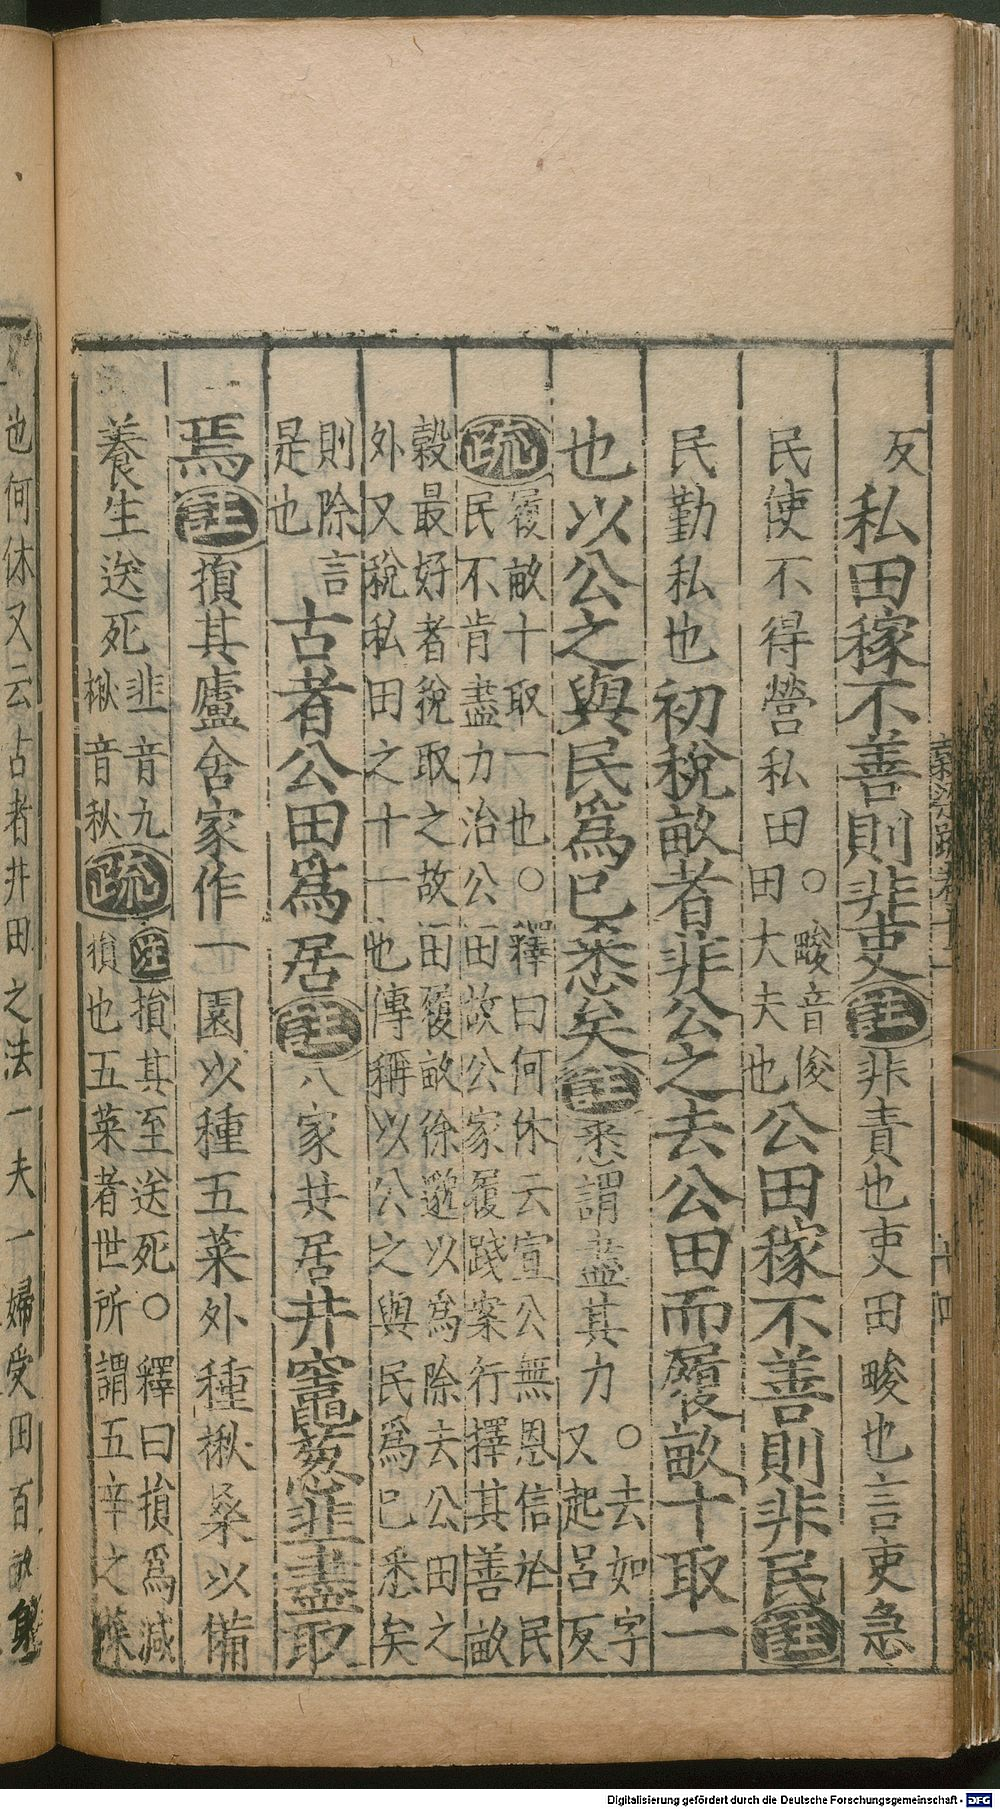 反私田稼不善則非吏註非責也吏田畯也言吏急
民使不得營私田○畯音俊田大夫也公田稼不善則非民註
民勤私也初稅畝者非公之去公田而履畝十取一
也以公之與民爲已悉矣註悉謂盡其力○去如字又起呂反
疏履畝十取一也○釋曰何休云宣公無恩信於民
民不肯盡力治公田故公家履踐案行擇其善畝
穀最好者稅取之故曰履畝徐邈以爲除去公田之
外又稅私田之十一也傳稱以公之與民爲已悉矣
則除言
是也
古者公田爲居註八家共居井竈葱韭盡取
焉註損其廬舍家作一園以種五菜外種楸桑以備
養生送死韭音九楸音秋疏註損其至送死○釋曰損爲減
損也五菜者世所謂五辛之菜
也何休又云古者井田之法一夫一婦受田百畝身
十四
Digitalisierung gefördert durch die Deutsche Forschungsgemeinschaft - DFG